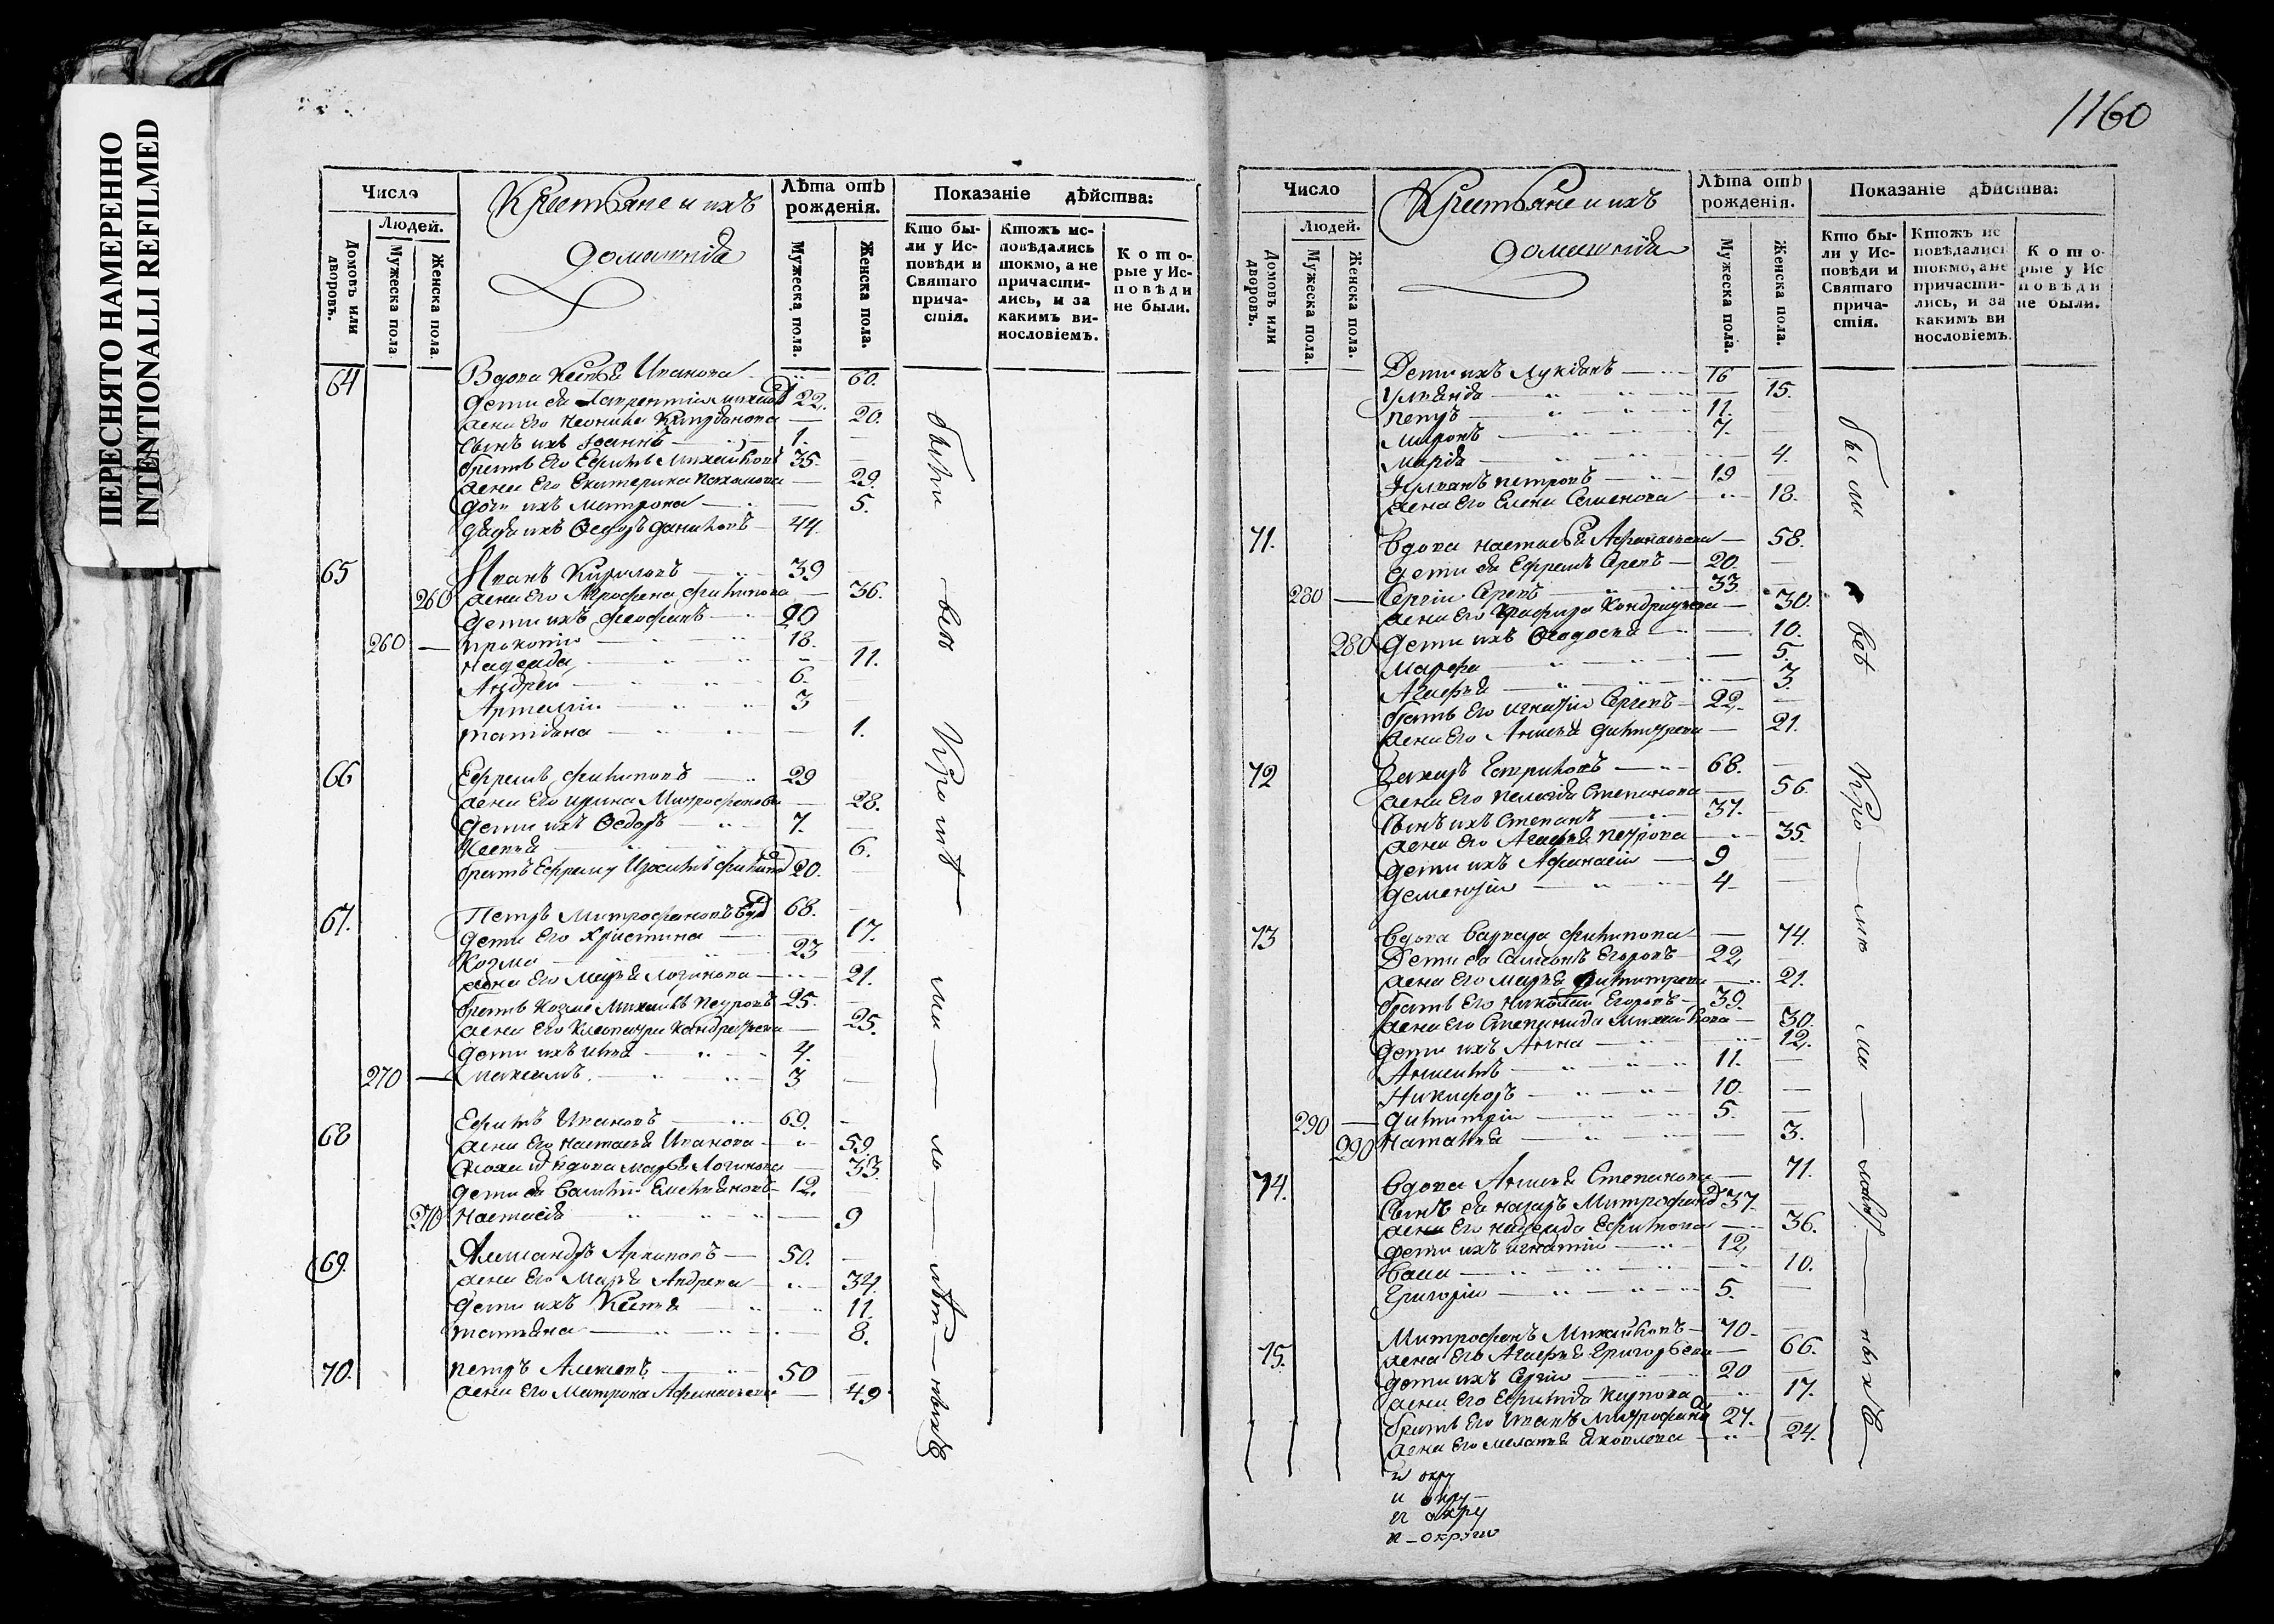 ПЕРЕСНЯТО НАМЕРЕННО
INTENTIONALLI REFILMED
Число
Людей.
Домовъ или дворовъ.
Мужеска пола
Женска пола.
Крестьяне и ихъ
домашнія
Лѣта отъ рожденія.
Мужеска пола.
Женска пола.
Показаніе дѣйства:
Кто бы-
ли у Ис-
повѣди и
Святаго
прича-
стія.
Ктожъ ис-
повѣдались
токмо, а не
причасти-
лись, и за
какимъ ви-
нословіемъ.
Кото-
рые у Ис-
повѣди
не были.
64 Вдова Ксенья Иванова 60.
дети ея Лаврентій 22.
жена его 20.
сынъ ихъ Іоаннъ 1.
братъ его Ефимъ Михайловъ 35.
жена его Екатерина Пахомова 29.
дочь ихъ Матрона 5.
дядя ихъ Ѳедоръ Даниловъ 44.
65 Иванъ Кириловъ 39
260 жена его Филипова 36.
дети ихъ Феофанъ 20
260 Прокопій 18.
Надежда 11.
Андрей 6.
Артемій 3
Татіана 1.
66 Ефремъ Филиповъ 29
жена его Ирина Митрофанова 28.
дети ихъ Ѳедоръ 7.
Ксенья 6.
братъ Ефрему 20.
67. Петръ Митрофановъ вд 68.
дети его Христина 17.
Козма 23
жена его Марья Логинова 21.
братъ Козме Михаилъ Петровъ 25.
жена его Клеопатра Кондратьева 25.
дети ихъ Илья 4.
270 Максимъ 3
68 Ефимъ Ивановъ 69.
жена его Настасья Иванова 59.
сноха вдова Марья Логинова 33.
дети ея Василій Емельяновъ 12.
270 Настасія 9
69. Александръ Архиповъ 50.
жена его Марья Андреева 34.
дети ихъ Ксенья 11.
Татьяна 8.
70. Петръ Алексеевъ 50
жена его Матрона Афанасьева 49
были все Кро ме ма ло лет ныхъ
1160
Число
Людей.
Домовъ или дворовъ.
Мужеска пола.
Женска пола.
Крестьяне и ихъ
домашнія
Лѣта отъ рожденія.
Мужеска пола.
Женска пола.
Показаніе дѣйства:
Кто бы-
ли у Ис-
повѣди и
Святаго
прича-
стія.
Ктожъ ис
повѣдались
токмо, а не
причасти-
лись, и за
какимъ ви
нословіемъ.
Кото-
рые у Ис
повѣди
не были.
Дети ихъ Лукіанъ 16
Ульянія 15.
Петръ 11.
Миронъ 7.
Марія 4.
Петровъ 19
жена его Елена Семенова 18.
71. Вдова Настасья Афанасьева 58.
дети ея Ефремъ Сергеевъ 20.
280 Сергій 33.
жена его Кондратьева 30.
280 дети ихъ Ѳеодосья 10.
Марфа 5.
Агафья 3.
братъ его Игнатій Сергеевъ 22.
жена его Анисья Димитрева 21.
72 Захаръ Гавриловъ 68.
жена его Пелагія Степанова 56.
сынъ ихъ Степанъ 37.
жена его Агафья Петрова 35.
дети ихъ Афанасій 9
Дементій 4
73 Вдова Варвара Филипова 74.
Дети ея Самсонъ Егоровъ 22,
жена его Марья Димитрева 21.
братъ его Николай Егоровъ 39.
жена его Степанида Михайлова 30.
дети ихъ Анна 12,
11.
Никифоръ 10.
290 Димитрій 5.
290 Наталья 3.
74. Вдова Анисья Степанова 71.
сынъ ея Назаръ Митрофанов 37.
жена его Надежда Ефимова 36.
дети ихъ Игнатій 12,
10.
Григорій 5.
75. Митрофанъ Михайловъ 70.
жена его Агафья Григорьева 66.
дети ихъ Сергій 20
жена его Евфимія 17.
братъ его Иванъ Митрофанов 27.
жена его Меланья Яковлева 24.
были все Кро ме ма лолет ныхъ
и окру
и окру
и окру
и округи